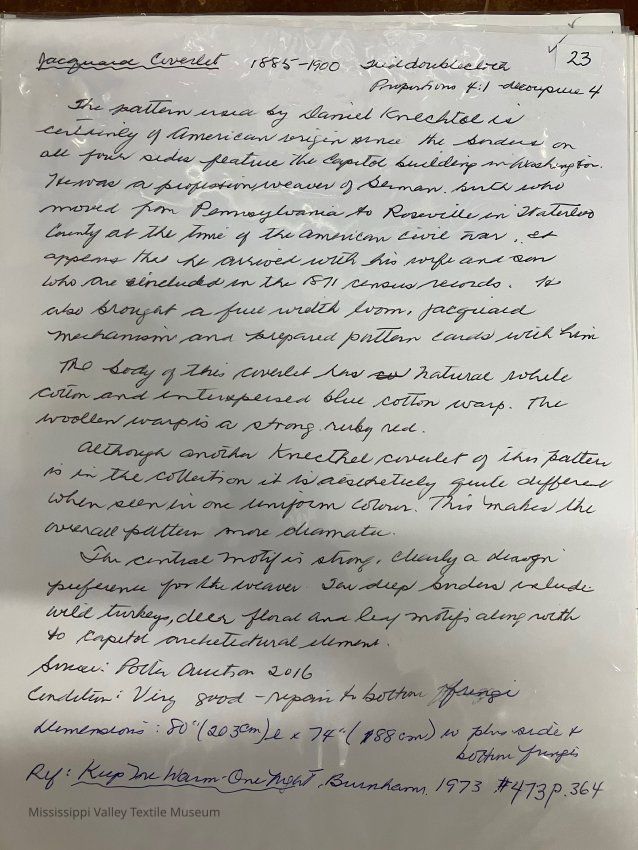 Jacquard Coverlet 1885-1900 Tied doublecloth 23
Proportions 4:1 decoupure 4
The pattern used by Daniel Knechtel is
certainly of American origin since the borders on
all four sides feature the Capitol building in Washington.
He was a profession weaver of German birth who
moved from Pennsylvania to Roseville in Waterloo
County at the time of the American civil war. It
appears that he arrived with his wife and son
who are included in the 1871 census records. He
also brought a full width loom, jacquard
mechanism and prepared pattern cards with him
The body of this coverlet has natural white
cotton and interspersed blue cotton warp. The
woollen warp is a strong ruby red.
Although another Knechtel coverlet of this pattern
is in the collection it is aestheticly quite different
when seen in one uniform colour. This makes the
overall pattern more dramatic.
The central motif is strong, clearly a design
preference for the weaver. The deep borders include
wild turkeys, deer floral and leaf motifs along with
to Capitol architectural element.
Source: Potter Auction 2016
Condition: Very good - repair to bottom fringe
Dimensions: 80" (203cm) l x 74" (188cm) w plus side &
bottom fringes
Ref: Keep Me Warm One Night, Burnham, 1973 #473 p.364
Mississippi Valley Textile Museum